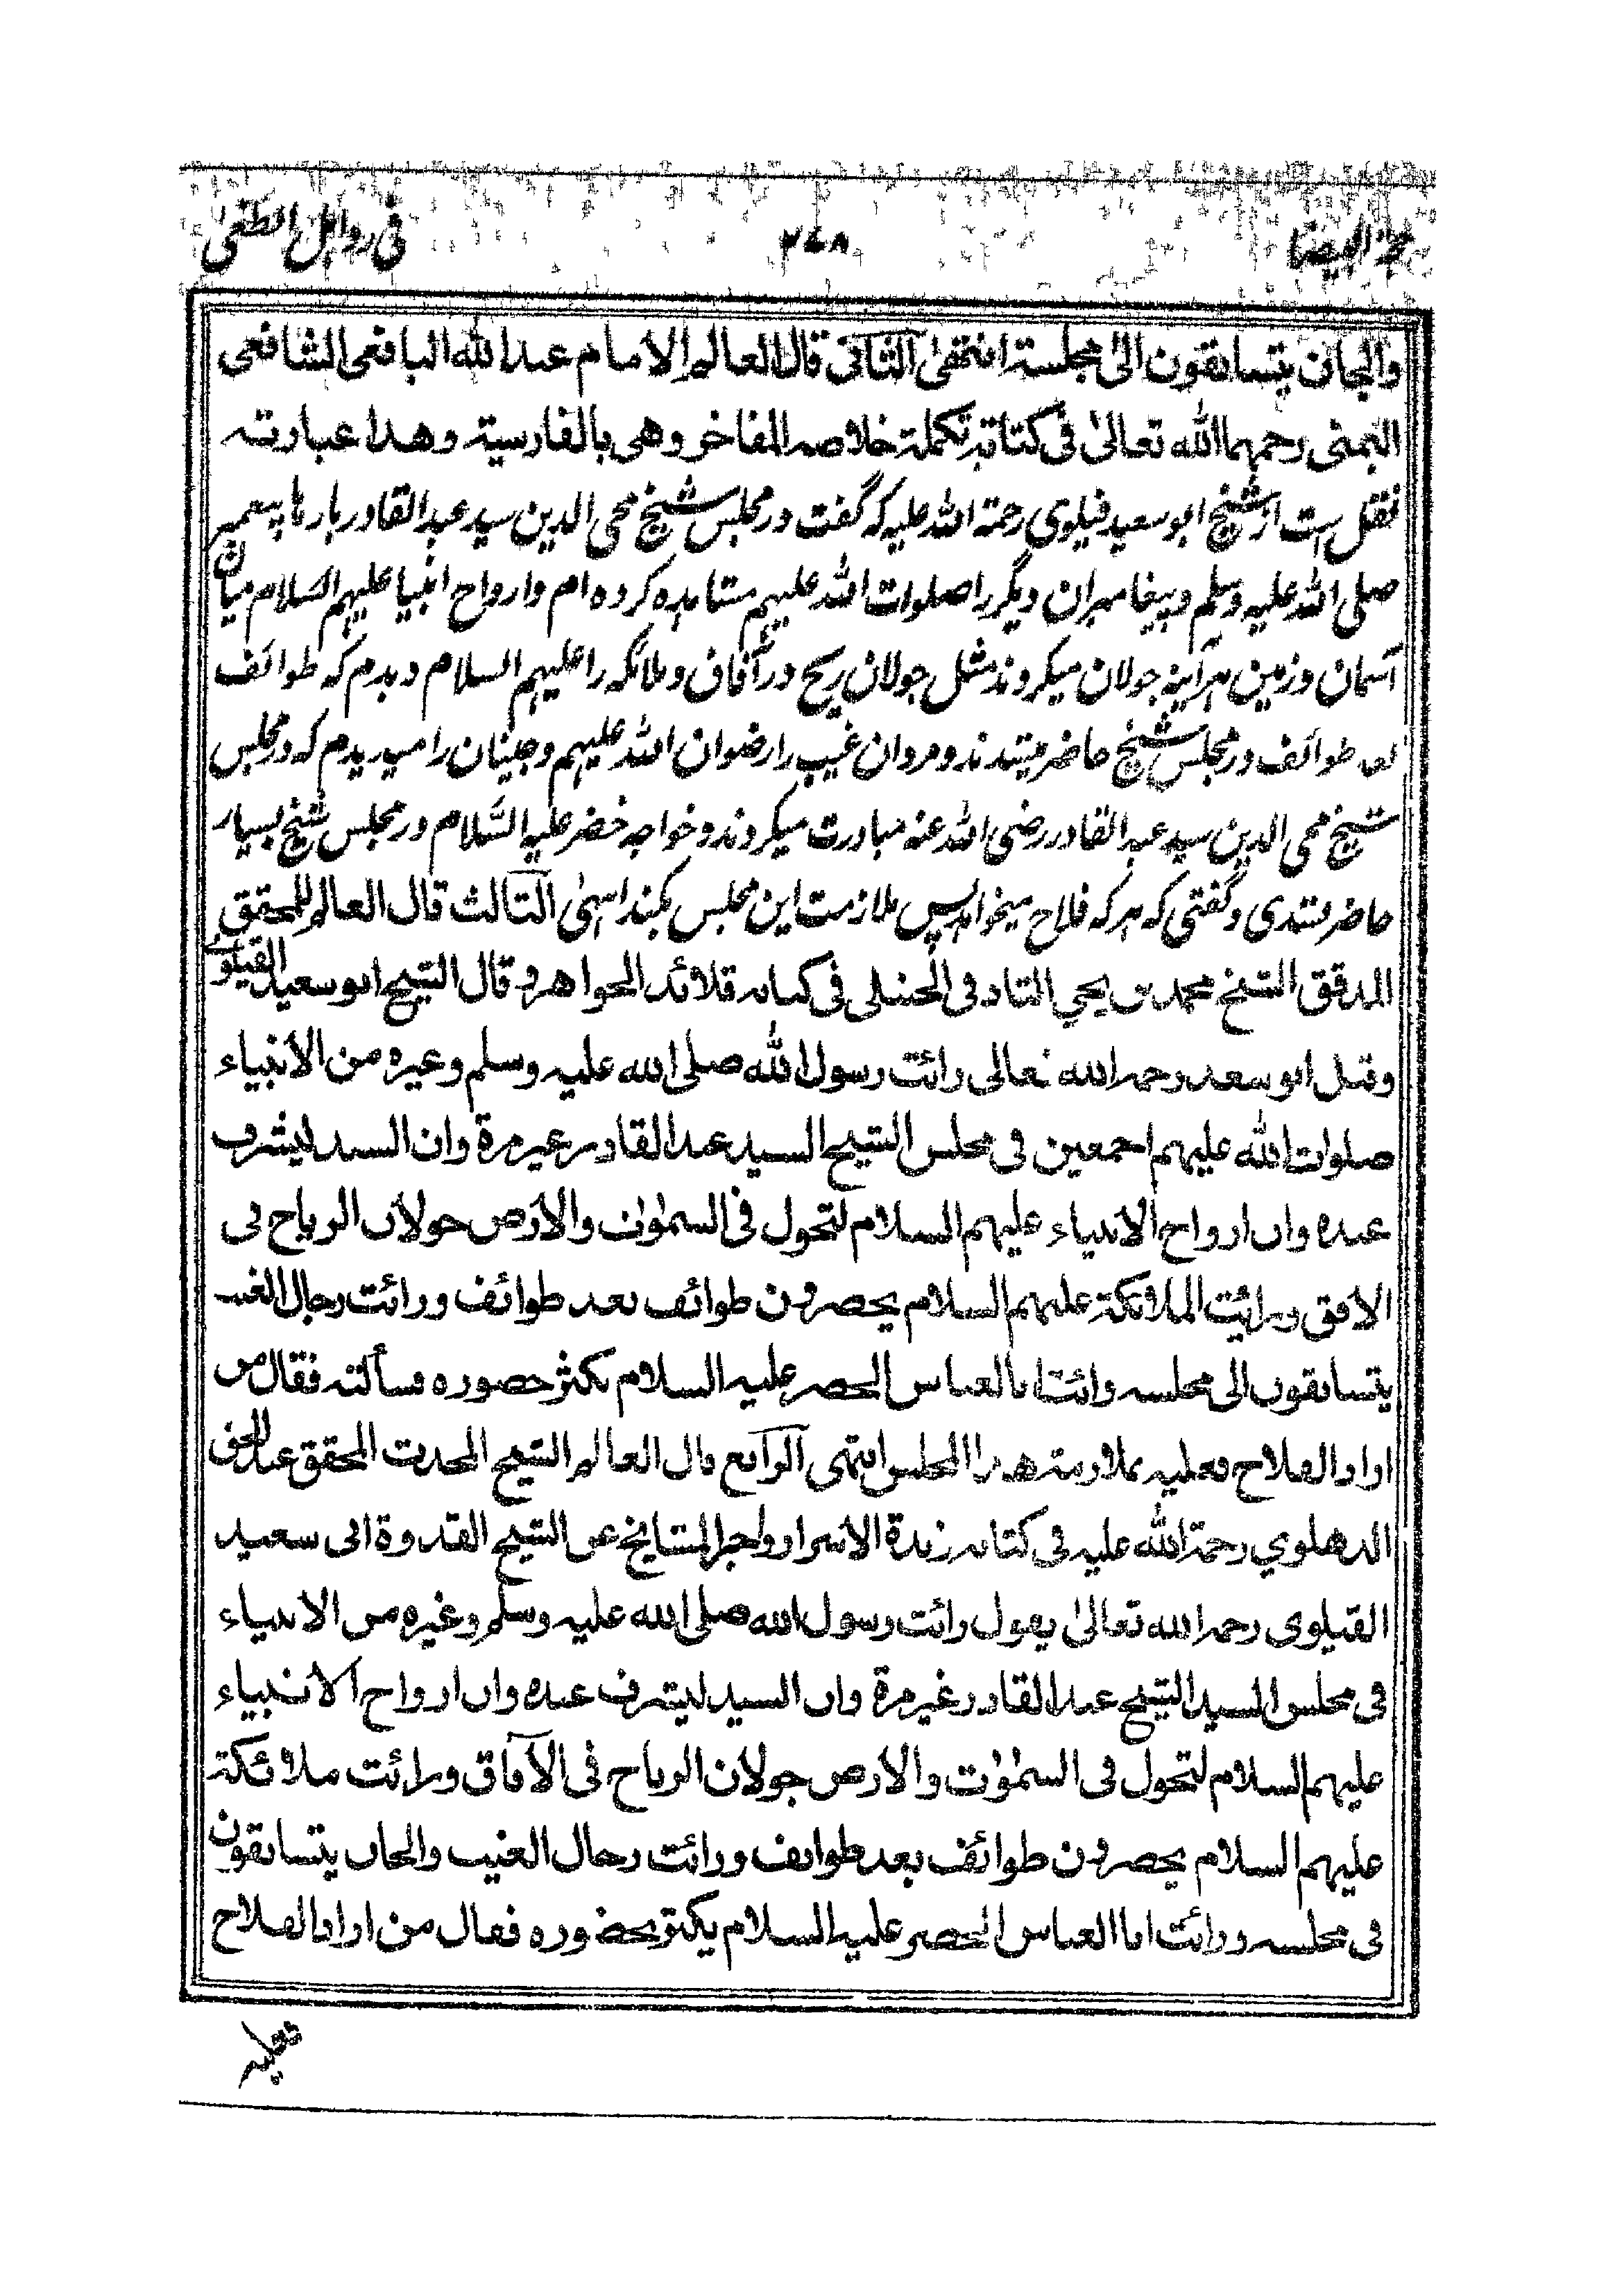 ٢٤٨
والجان يتسابقون الى مجلسة انتهى الثانى قال العالم الامام عبد الله اليافعى الشافعى
اليمنى رحمهما الله تعالىٰ فى كتابه تكملة خلاصه المفاخر وهى بالفارسية وهذا عبارته
نقل ست از شیخ ابو سعید قیلوی رحمة الله علیه که گفت در مجلس شیخ محی الدین سید عبد القادر بارها پیغمبر
صلی الله علیه وسلم و پیغامبران دیگر را صلوات الله علیهم مشاهده کرده ام وارواح انبیا علیهم السلام میان
آسمان وزمین هرآینه جولان میکروند مثل جولان ریح در آفاق وملائکه را علیهم السلام دیدم که طوائف
بعد طوائف در مجلس شیخ حاضر میشدند ومردان غیب را رضوان الله علیهم وجنیان را میدیدم که در مجلس
شیخ محی الدین سید عبد القادر رضی الله عنه مبادرت میکروند وخواجه خضر علیه السّلام در مجلس شیخ بسیار
حاضر شدی وگفتی که هر که فلاح میخواهد پس ملازمت این مجلس بکند انتهى الثالث قال العالم المحقق
المدقق الشيخ محمد بن يحيي التادفى الحنبلى فى كتابه قلائد الجواهر وقال الشيخ ابو سعيد القيلوى
وقيل ابو سعد رحمه الله تعالى رائت رسول الله صلى الله عليه وسلم وغيره من الانبياء
صلوات الله عليهم اجمعين فى مجلس الشيخ السيد عبد القادر غير مرة وان السيد ليشرف
عبده وان ارواح الانبياء عليهم السلام لتجول فى السمٰوٰت والارض جولان الرياح فى
الافق ورائيت الملائكة عليهم السلام يحضرون طوائف بعد طوائف ورائت رجال الغيب
يتسابقون الى مجلسه ورائت ابا العباس الخضر عليه السلام يكثر حضوره فسألته فقال من
اراد الفلاح فعليه بملازمة هذا المجلس انتهى الرابع قال العالم الشيخ المحدث المحقق عبد الحق
الدهلوي رحمة الله عليه فى كتابه زبدة الاسرار واخبر المشايخ عن الشيخ القدوة ابى سعيد
القيلوى رحمه الله تعالىٰ يقول رائت رسول الله صلى الله عليه وسلم وغيره من الانبياء
فى مجلس السيد الشيخ عبد القادر غير مرة وان السيد ليشرف عبده وان ارواح الانبياء
عليهم السلام لتجول فى السمٰوٰت والارض جولان الرياح فى الآفاق ورائت ملائكة
عليهم السلام يحضرون طوائف بعد طوائف ورائت رجال الغيب والجان يتسابقون
فى مجلسه ورائت ابا العباس الخضر عليه السلام يكثر بحضوره فقال من اراد الفلاح
فعليه